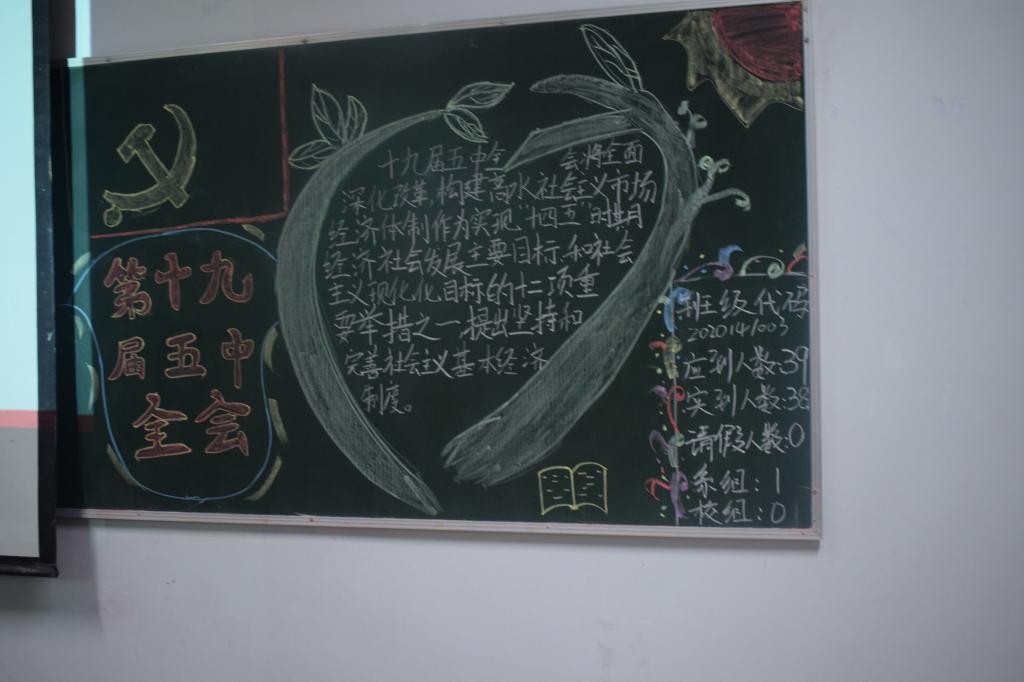 第十九
届五中
全会
十九届五中全会将全面
深化改革,构建高水社会主义市场
经济体制作为实现"十四五"时期
经济社会发展主要目标和社会
主义现化化目标的十二项重
要举措之一,提出坚持和
完善社会主义基本经济
制度。
班级代码
2020141003
应到人数:39
实到人数:38
请假人数:0
系组:1
校组:0